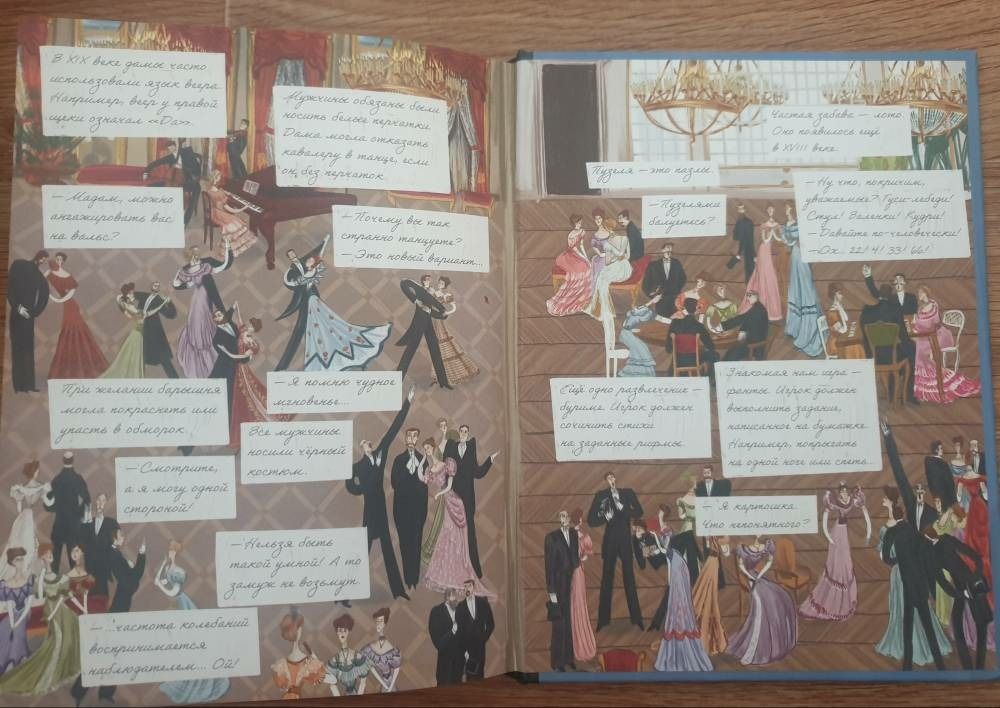 В XIX веке дамы часто
использовали язык веера.
Например, веер у правой
щеки означал «Да».
Мужчины обязаны были
носить белые перчатки.
Дама могла отказать
кавалеру в танце, если
он без перчаток.
— Мадам, можно
ангажировать вас
на вальс?
— Почему вы так
странно танцуете?
— Это новый вариант...
При желании барышня
могла покраснеть или
упасть в обморок.
— Я помню чудное
мгновенье...
Все мужчины
носили чёрный
костюм.
— Смотрите,
а я могу одной
стороной!
— Нельзя быть
такой умной! А то
замуж не возьмут.
— ...частота колебаний
воспринимается
наблюдателем... Ой!
Частая забава — лото.
Оно появилось ещё
в XVIII веке.
Пузеля — это пазлы.
— Пузелями
балуетесь?
— Ну что, покричим,
уважаемые? Гуси-лебеди!
Стул! Валенки! Кудри!
— Давайте по-человечески!
— Ох... 22! 4! 33! 66!
Ещё одно развлечение —
буриме. Игрок должен
сочинить стихи
на заданные рифмы.
Знакомая нам игра —
фанты. Игрок должен
выполнить задание,
написанное на бумажке.
Например, попрыгать
на одной ноге или спеть...
— Я картошка.
Что непонятного?